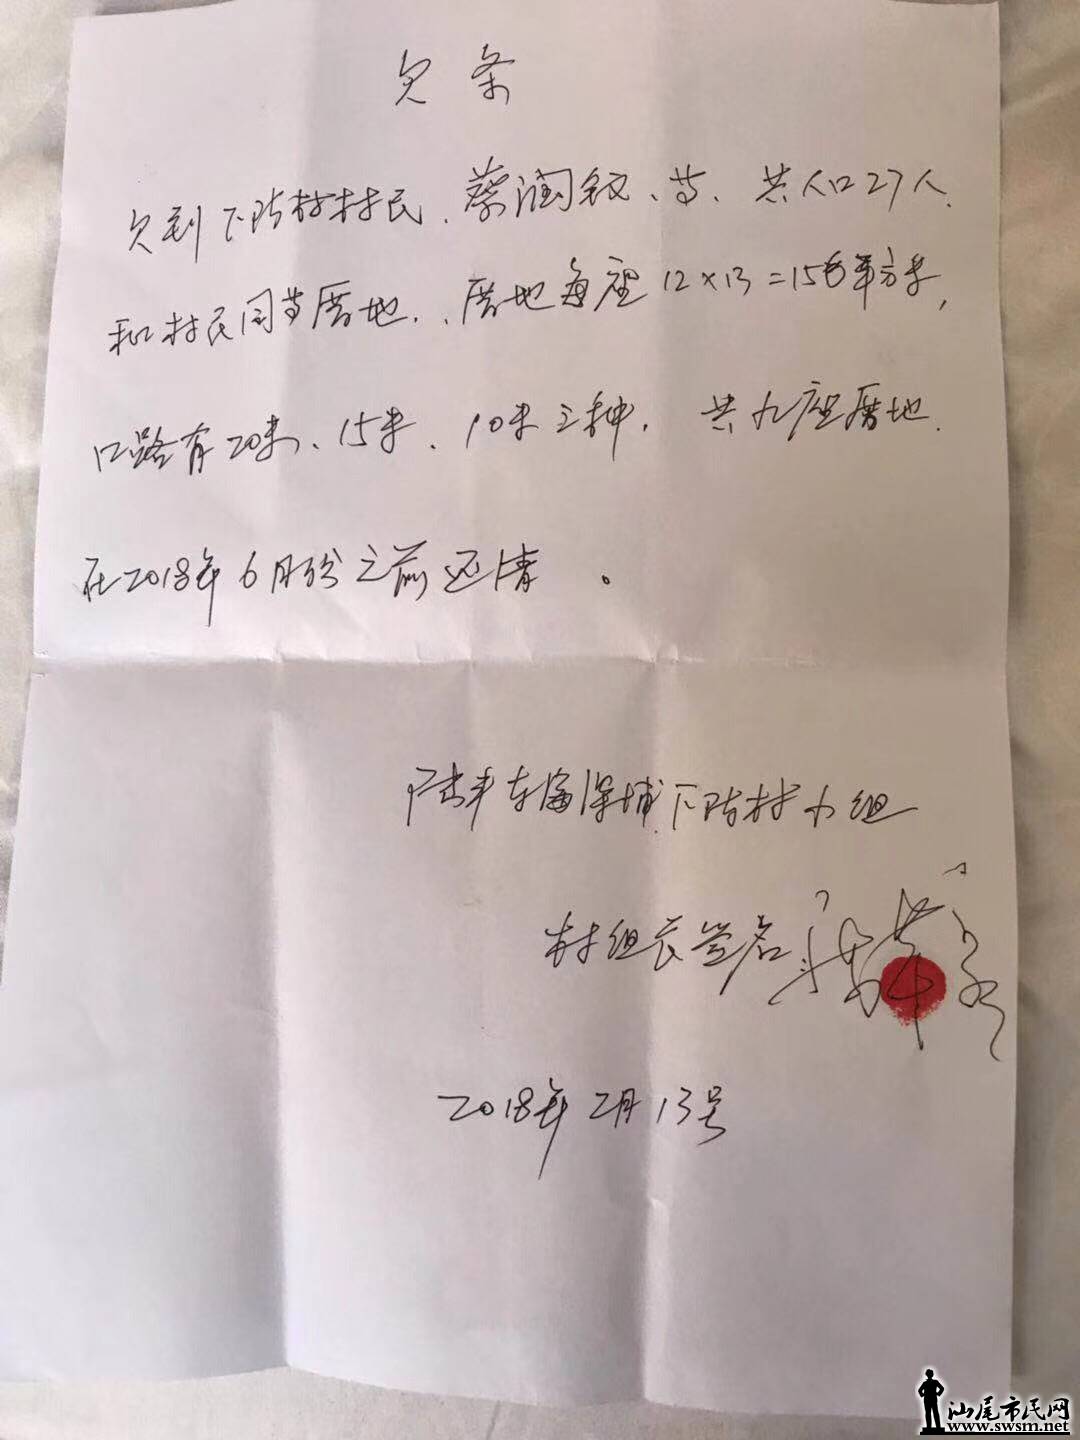 欠条
欠到下陇村村民、蔡润钗、等、共人口27人、
和村民同等厝地、、厝地每座12×13=156平方米,
口路有20米、15米、10米三种, 共九座厝地、
在2018年6月份之前还清。
陆丰东海深埔下陇村小组
村组长签名
2018年2月13号
汕尾市民网
www.swsm.net